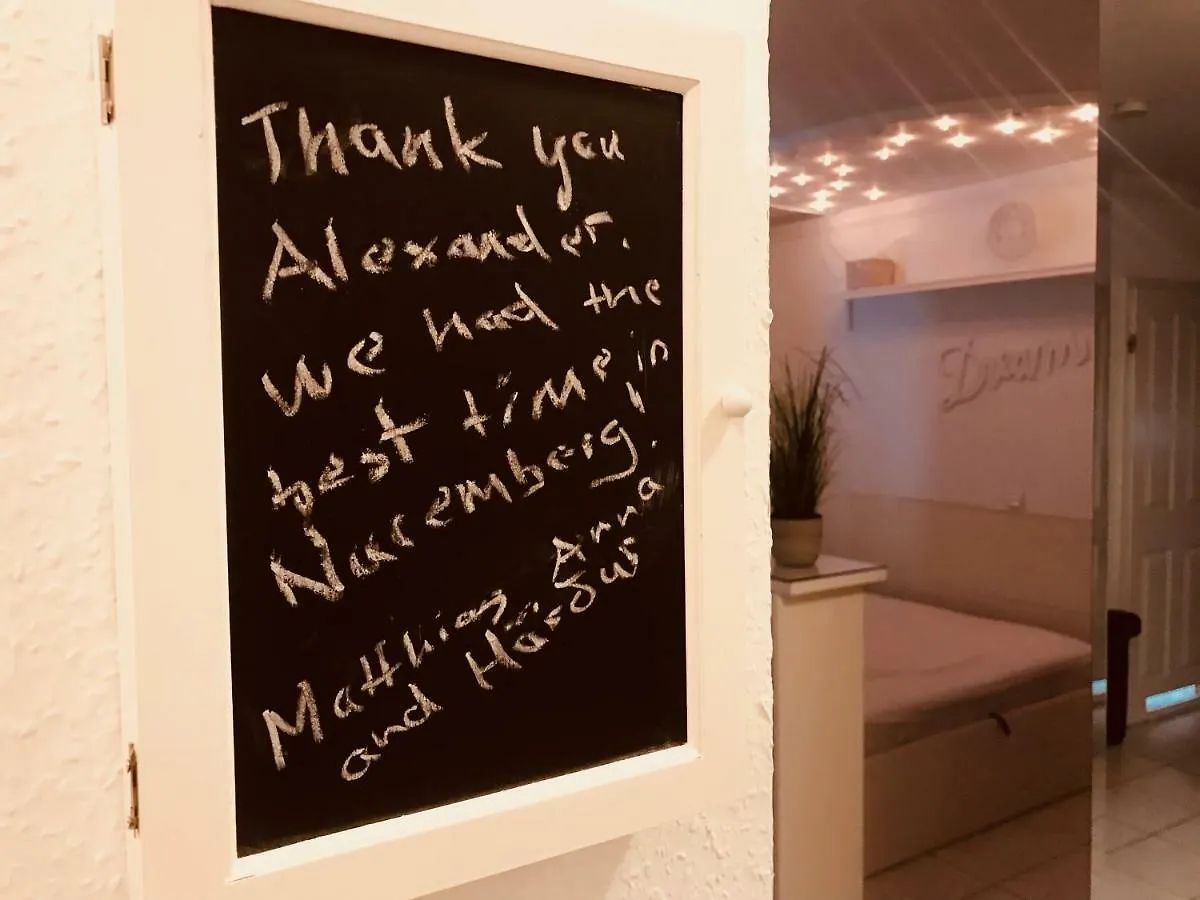 Thank you
Alexander.
we had the
best time in
Nuremberg!
Matthias, Anna
and Hardus
Dreams